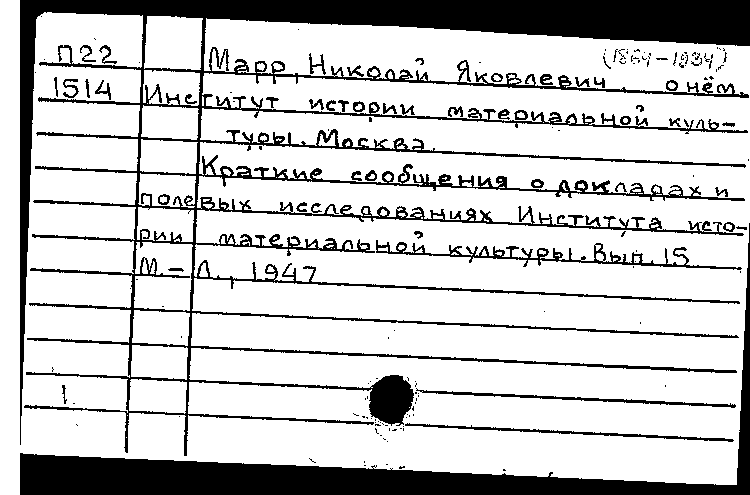 (1864-1934)
П22 Марр, Николай Яковлевич. о нём.
1514 Институт истории материальной куль-
туры. Москва.
Краткие сообщения о докладах и
полевых исследованиях Института исто-
рии материальной культуры. Вып. 15
М.-Л., 1947
1